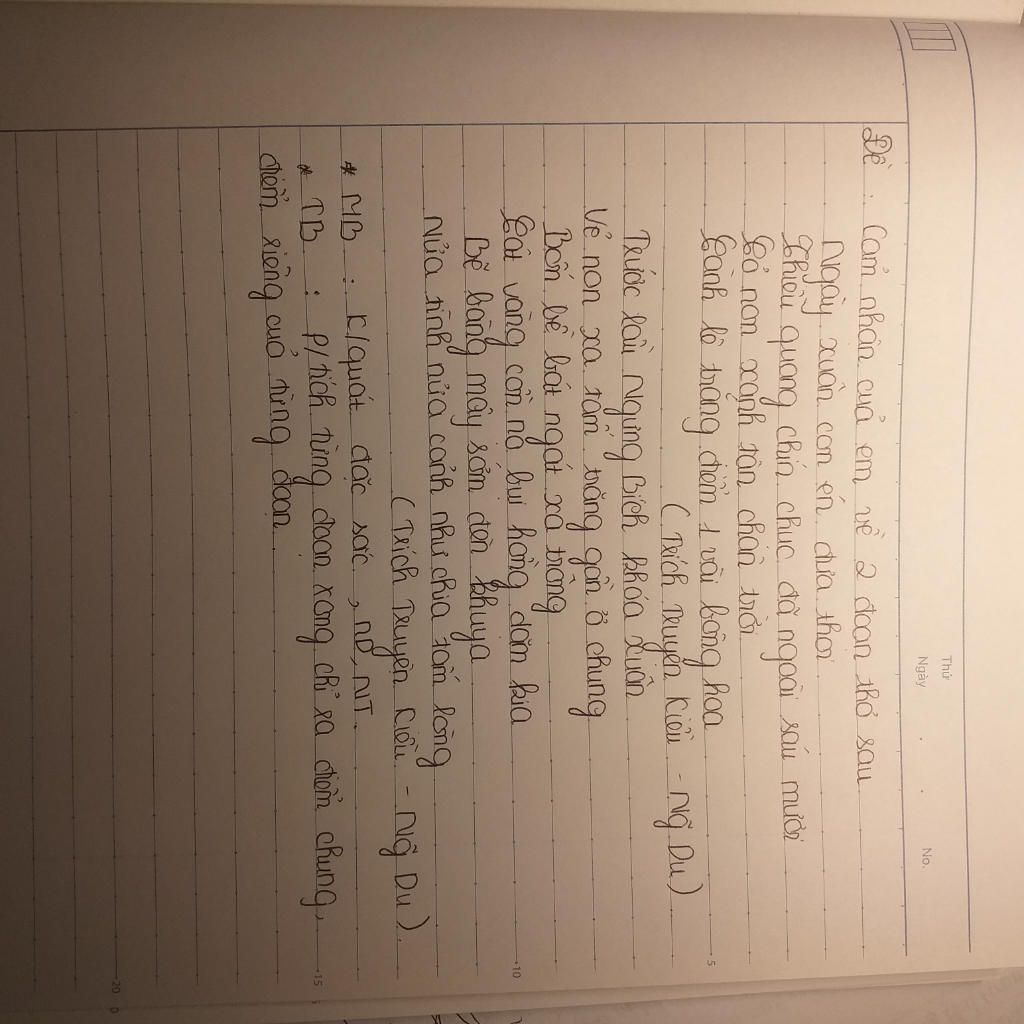 Thứ
Ngày . . No.
Đề : Cảm nhận của em về 2 đoạn thơ sau
Ngày xuân con én đưa thoi
Thiều quang chín chục đã ngoài sáu mươi
Cỏ non xanh tận chân trời
Cành lê trắng điểm 1 vài bông hoa
( Trích Truyện Kiều - Ng Du )
Trước lầu Ngưng Bích khóa xuân
Vẻ non xa tấm trăng gần ở chung
Bốn bề bát ngát xa trông
Cát vàng cồn nọ bụi hồng dặm kia
Bẽ bàng mây sớm đèn khuya
Nửa tình nửa cảnh như chia tấm lòng
( Trích Truyện Kiều - Ng Du ).
* MB : K/quát đặc sắc , ND, NT.
* TB : P/tích từng đoạn xong chỉ ra điểm chung,
điểm riêng của từng đoạn
5
10
15
20